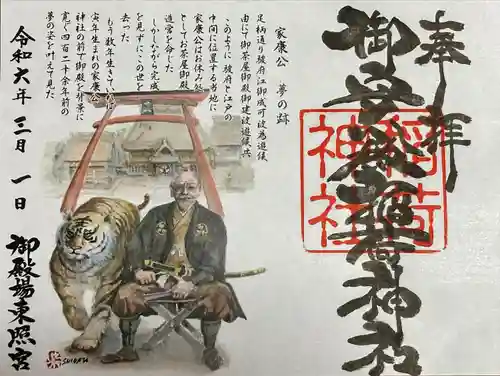 奉拝
稲荷神社
稲荷
神社
家康公 夢の跡
足柄通り駿府江御成可被為遊候
由にて御茶屋御殿御建被遊候共
このように駿府と江戸の
中間に位置する当地に
家康公はお休み処
としてお茶屋御殿
造営を命じた
しかしながら完成
を見ずにこの世を
去った
もう数年生きてい
寅年生まれの家康公
神社の前で御殿を背景に
四百二十余年前の
夢の姿を叶えて見た
令和六年 三月 一日
御殿場東照宮